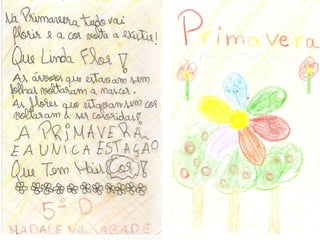 Na Primavera tudo vai
florir e a cor volta a existir!
Que Linda Flor!
As árvores que estavam sem
folhas voltaram a nascer.
As flores que estavam sem cor
voltaram a ser coloridas!
A PRIMAVERA
E A UNICA ESTAÇÃO
Que Tem Mais Cor!
5º D
MADALENA ABADE
Primavera